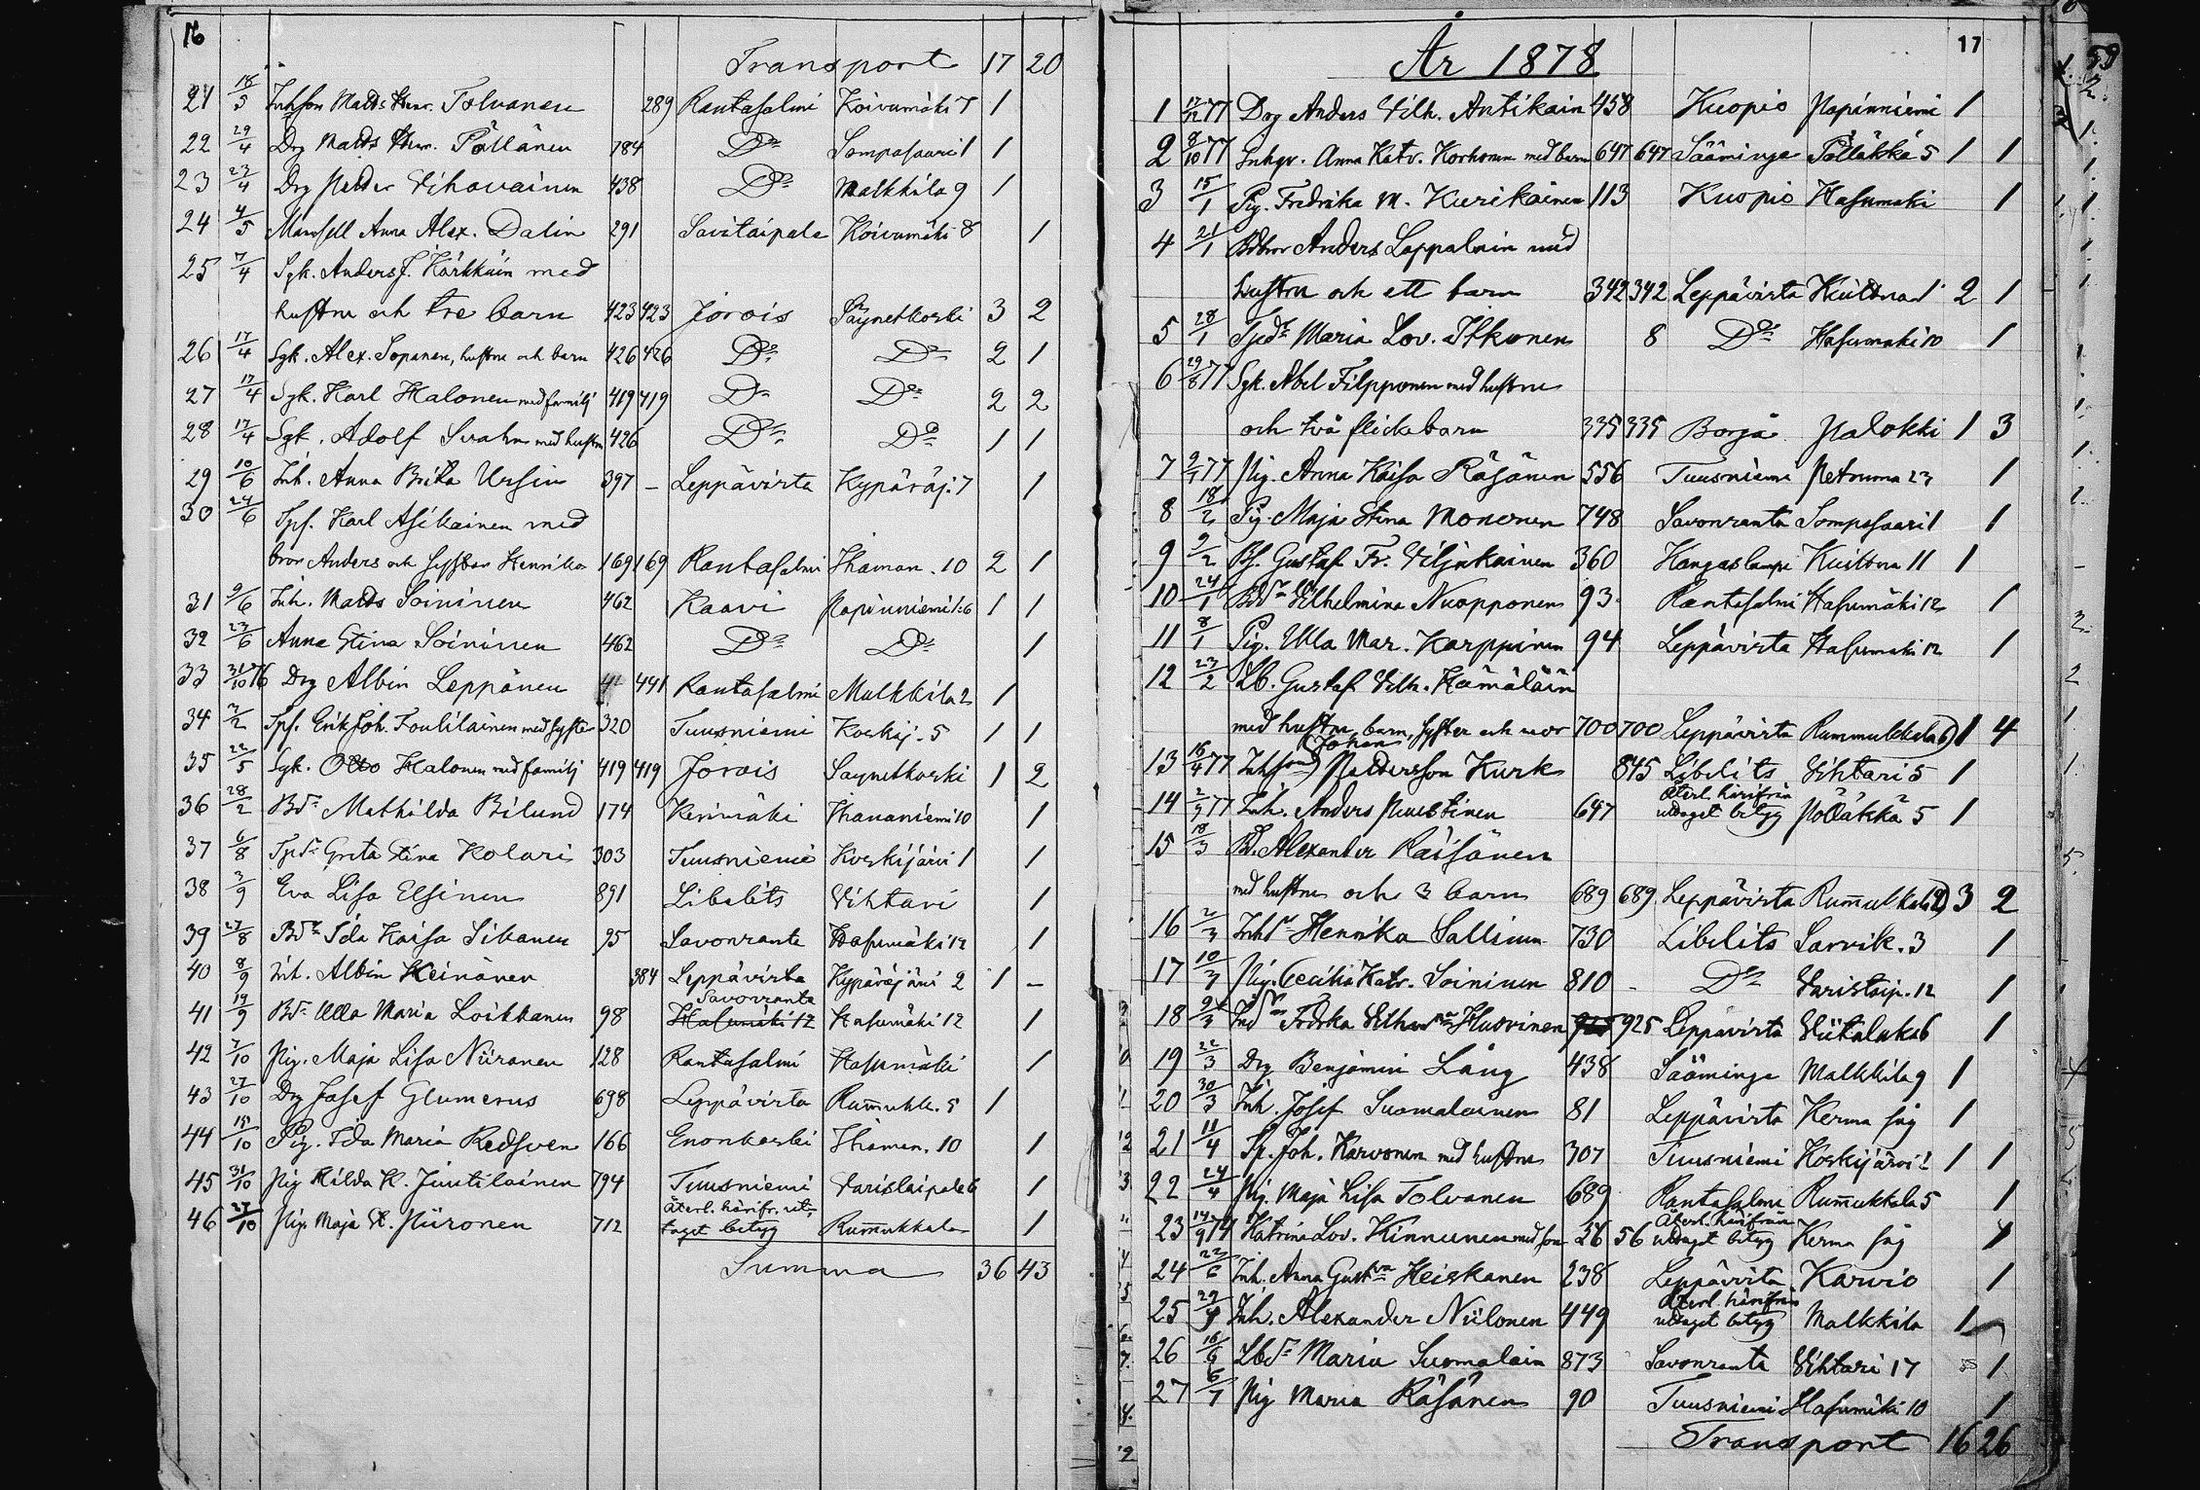 16
Transport 17 20
21 18/3 Inhson Matts Henr. Tolvanen 289 Rantasalmi Koivumäki 7 1
22 29/4 Drg Matts Henr. Pöllänen 784 Do Sompasaari 1 1
23 23/4 Drg Petter Vihavainen 438 Do Malkkila 9 1
24 4/5 Mamsell Anna Alex. Dalin 291 Savitaipale Koivumäki 8 1
25 7/4 Sgk. Anders J. Kärkkäin med
hustru och tre barn 423 423 Jorois Säynetkoski 3 2
26 17/4 Sgk. Alex. Sopanen, hustru och barn 426 426 Do Do 2 1
27 17/4 Sgk. Karl Halonen med familj 419 419 Do Do 2 2
28 17/4 Sgk. Adolf Svahn med hustru 426 Do Do 1 1
29 10/6 Inh. Anna Brita Ursin 397 – Leppävirta Kypäräj. 7 1
30 24/6 Spf. Karl Asikainen med
bror Anders och syster Henrika 169 169 Rantasalmi Ihaman. 10 2 1
31 9/6 Inh. Matts Soininen 462 Kaavi Papinniemi 1:6 1 1
32 23/6 Anna Stina Soininen 462 Do Do 1
33 31/10 76 Drg Albin Leppänen 441 Rantasalmi Malkkila 2 1
34 2/2 Spf. Erik Joh. Toutilainen med syster 320 Tuusniemi Koskij. 5 1 1
35 22/5 Sgk. Otto Halonen med familj 419 419 Jorois Säynetkoski 1 2
36 28/2 Bdr Mathilda Bilund 174 Kerimäki Ihananiemi 10 1
37 6/8 Tpdr Greta Stina Kolari 303 Tuusniemi Koskijärvi 1 1
38 3/9 Eva Lisa Elsinen 891 Libelits Vihtari 1
39 27/8 Bdr Ida Kaisa Sikanen 95 Savonranta Hasumäki 12 1
40 8/9 Inh. Albin Heinänen 384 Leppävirta Kypäräjärvi 2 1 –
Savonranta
41 19/9 Bdr Ulla Maria Loikkanen 98 Hasumäki 12 Hasumäki 12 1
42 7/10 Pig. Maja Lisa Niiranen 128 Rantasalmi Hasumäki 1
43 27/10 Drg Josef Glumerus 698 Leppävirta Rummukk. 5 1
44 15/10 Pig. Ida Maria Redsven 166 Enonkoski Ihaman. 10 1
45 31/10 Pig Hilda K. Juutilainen 794 Tuusniemi Varistaipale 6 1
återl. härifr. ut-
46 27/10 Pig. Maja St. Piironen 712 taget betyg Rummukkala 1
Summa 36 43
17
År 1878
1 17/12 77 Drg Anders Vilh. Antikain 458 Kuopio Papinniemi 1
2 8/10 77 Inhgr. Anna Katr. Korhonen med barn 647 647 Sääminge Pölläkkä 5 1 1
3 15/1 Pig. Fredrika M. Kurikainen 113 Kuopio Hasumäki 1
4 21/1 Anders Lappalain med
hustru och ett barn 342 342 Leppävirta Kuittua 1 2 1
5 28/1 Maria Lov. Itkonen 8 Do Hasumäki 10 1
6 29/8 77 Sgk. Abel Filpponen med hustru
och två flickebarn 335 335 Borgå Palokki 1 3
7 9/7 77 Pig. Anna Kaisa Räsänen 556 Tuusniemi Petruma 23 1
8 18/2 Pig. Maja Stina Mononen 748 Savonranta Sompasaari 1 1
9 9/2 Bf. Gustaf Fr. Viljakainen 360 Kangaslampi Kuittua 11 1
10 24/1 Bdr Vilhelmina Nuopponen 93 Rantasalmi Hasumäki 12 1
11 8/1 Pig. Ulla Mar. Karppinen 94 Leppävirta Hasumäki 12 1
12 23/2 Lb. Gustaf Vilh. Hämäläin
med hustru, barn, syster och mor 700 700 Leppävirta Rummukkala 6 1 4
Johan
13 16/4 77 Inhson Pettersson Kurk 845 Libelits Vihtari 5 1
återl. härifrån
14 2/9 77 Inh. Anders Puustinen 647 uttaget betyg Pölläkkä 5 1
15 18/3 Bd. Alexander Räisänen
med hustru och 3 barn 689 689 Leppävirta Rummukkala 12 3 2
16 2/3 Inhdr Henrika Sallinen 730 Libelits Sarvik. 3 1
17 10/3 Pig. Cecilia Katr. Soininen 810 – Do Varistaip. 12 1
18 9/3 Fredrka Vilhna Husvinen 925 925 Leppävirta Viitalaks 6 1
19 22/3 Drg Benjamin Lång 438 Sääminge Malkkila 9 1
20 30/3 Inh. Josef Suomalainen 81 Leppävirta Kerma såg 1
21 11/4 Sp. Joh. Karvonen med hustru 307 Tuusniemi Koskijärvi 2 1 1
22 24/4 Pig. Maja Lisa Tolvanen 689 Rantasalmi Rummukkala 5 1
återl. härifrån
23 14/9 74 Katrina Lov. Kinnunen med son 56 56 uttaget betyg Kerma såg 1
24 22/6 Inh. Anna Gustva Heiskanen 238 Leppävirta Karvio 1
återl. härifrån
25 29/4 Inh. Alexander Niilonen 449 uttaget betyg Malkkila 1
26 16/6 Lbdr Maria Suomalain 873 Savonranta Vihtari 17 1
27 6/7 Pig Maria Räsänen 90 Tuusniemi Hasumäki 10 1
Transport 16 26